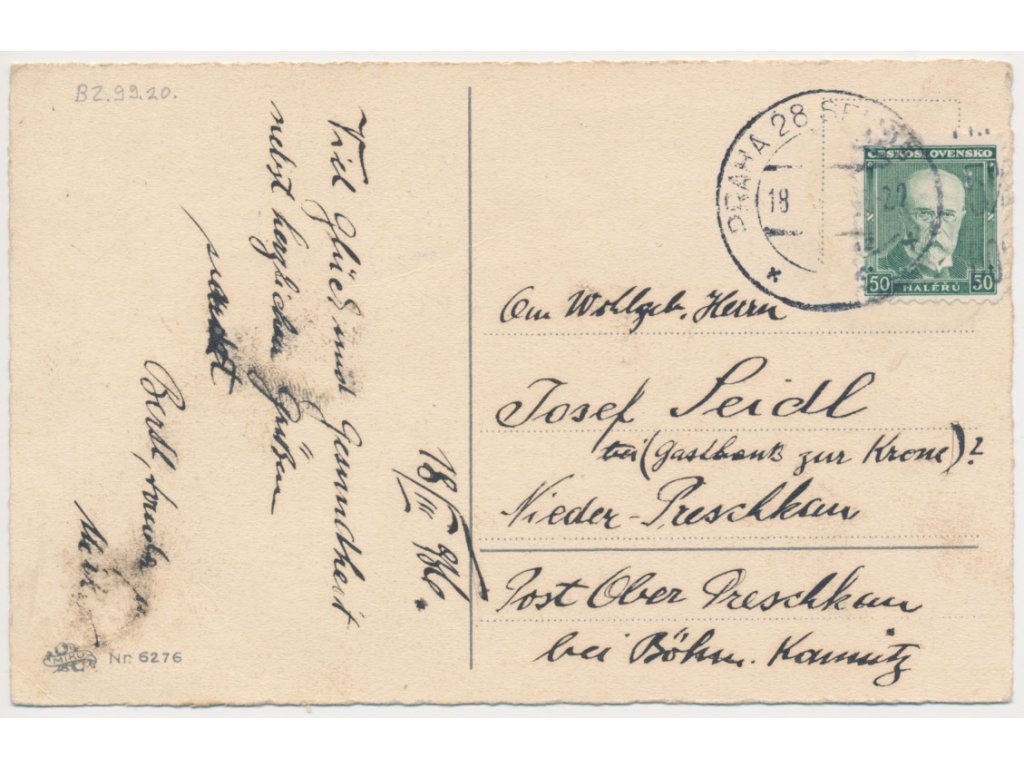 BZ.99.20.
Viel Glück und Gesundheit
nebst herzlichen Grüßen
sendet
Bertl,
18/III 936.
Nr. 6276
MIKU
PRAHA 28
18
ČESKOSLOVENSKO
50 HALÉŘŮ 50
An Wohlgeb. Herrn
Josef Seidl
bei (Gasthaus zur Krone)?
Nieder-Preschkau
Post Ober Preschkau
bei Böhm. Kamnitz